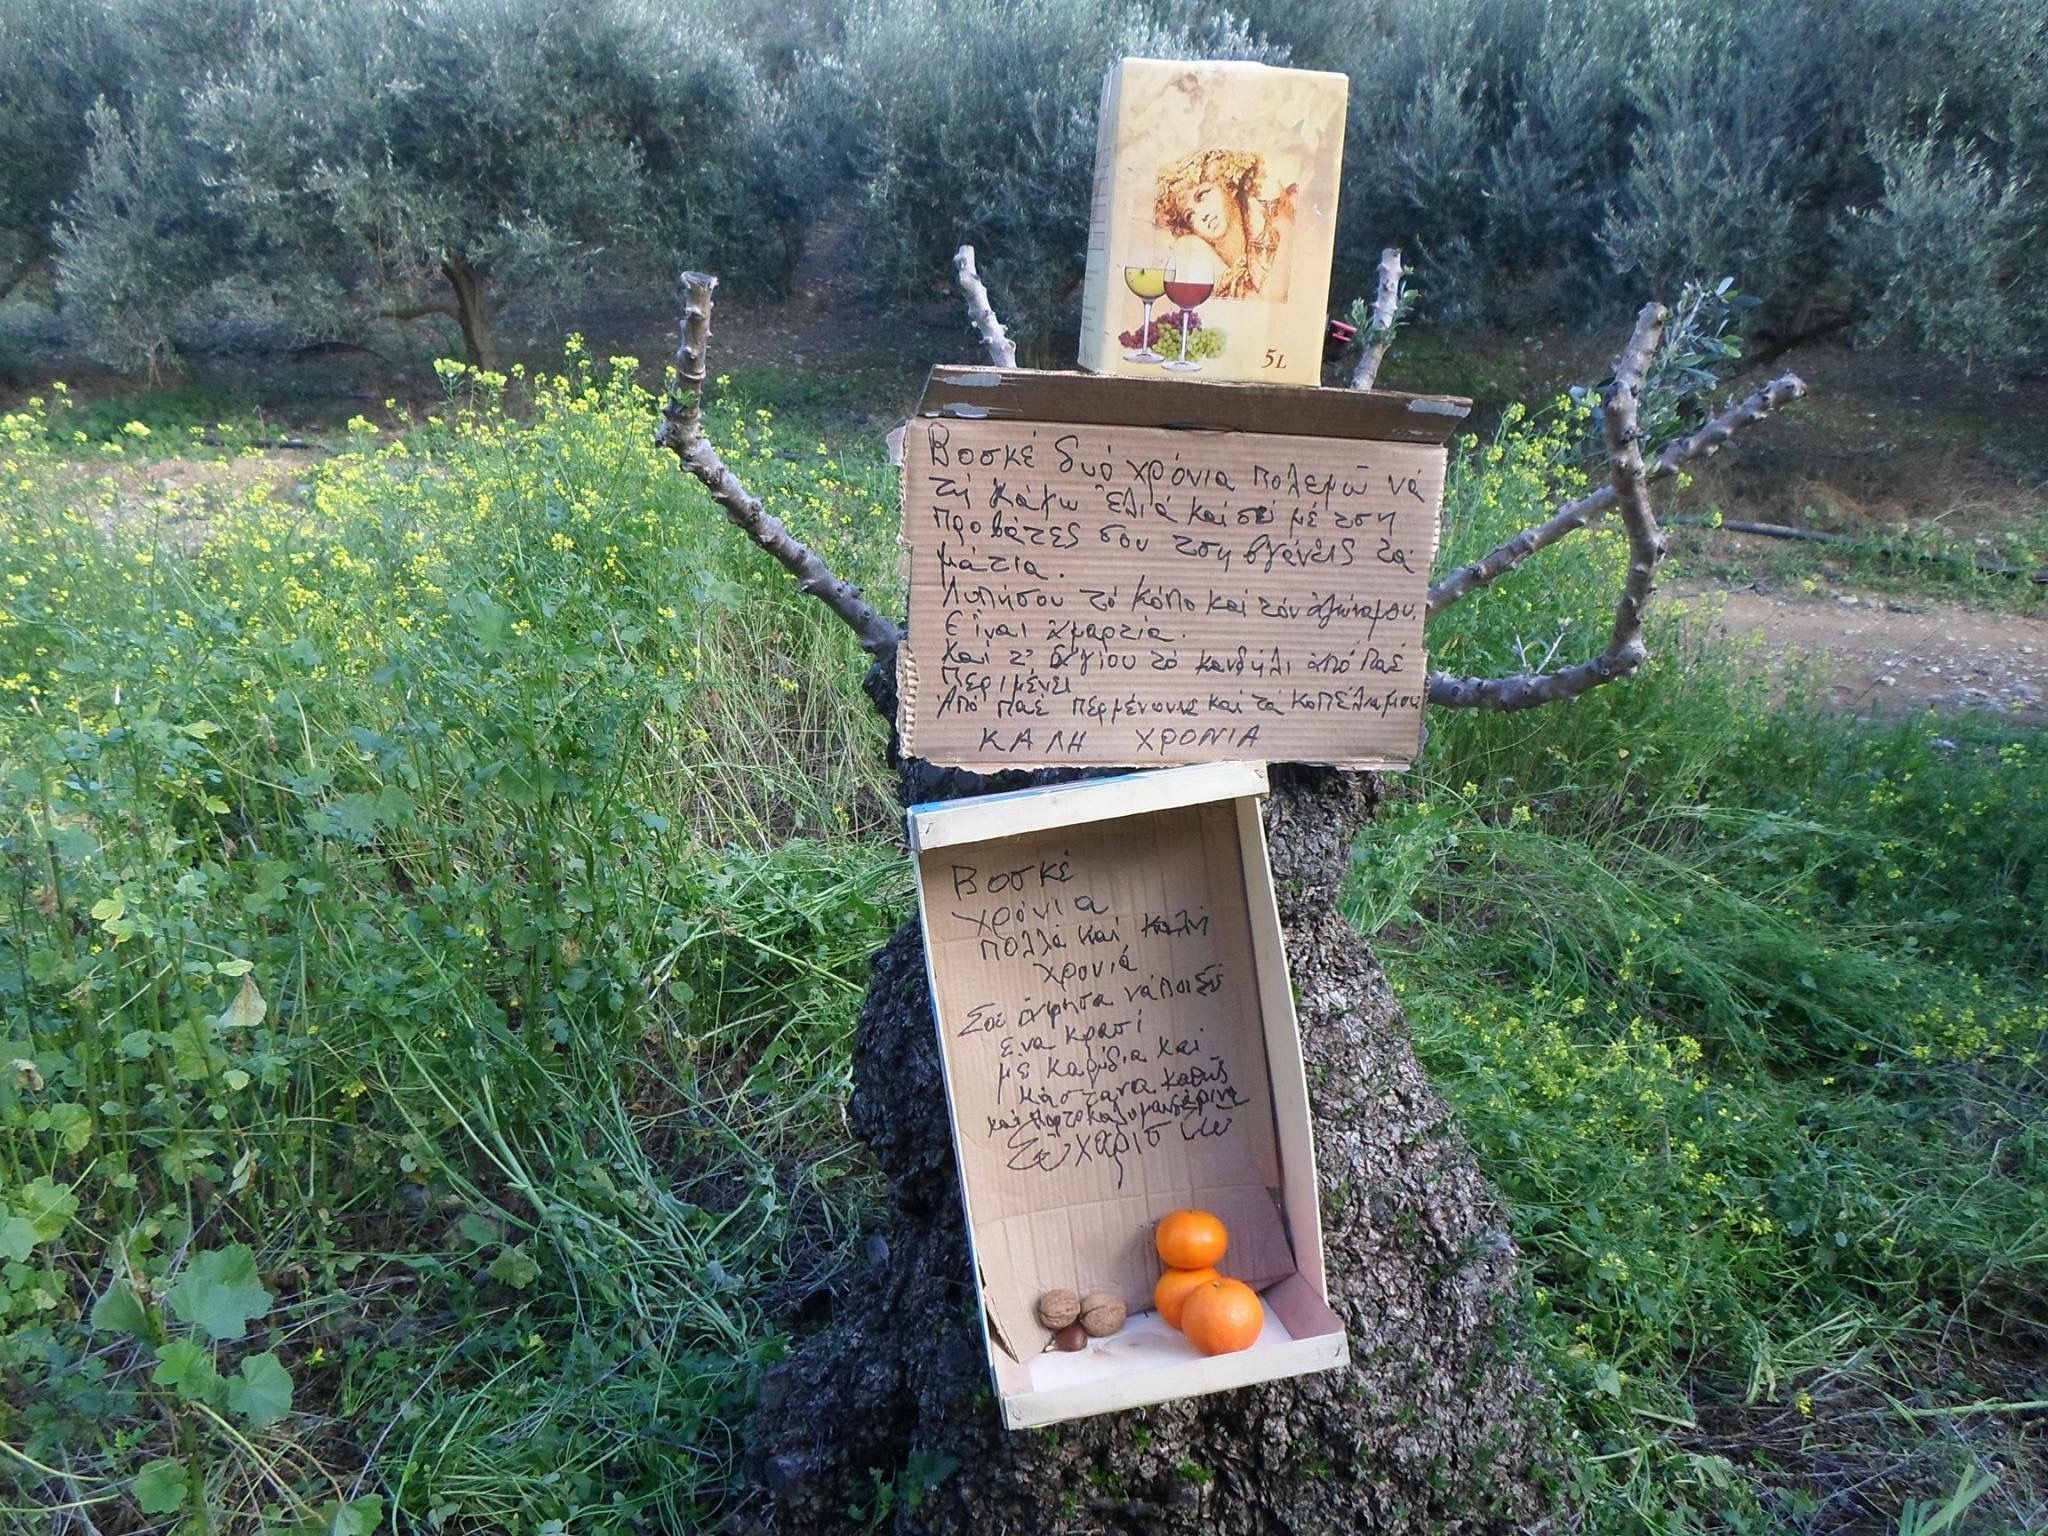 5L
Βοσκέ δυό χρόνια πολεμῶ νά
τή κάμω ἐλιά καί σύ μέ τση
προβάτες σου τση βγάνεις τά
μάτια.
Λυπήσου τό κόπο καί τόν
Εἶναι ἁμαρτία.
Καί τ' ἁγίου τό καντήλι ἀπό παέ
περιμένει
Ἀπό παέ περμένουνε καί τά κοπέλια μου
ΚΑΛΗ ΧΡΟΝΙΑ
Βοσκέ
χρόνια
πολλά καί καλή
χρονιά
Σοῦ ἄφησα νά πιεῖς
ἕνα κρασί
μέ καρύδια καί
κάστανα καθώς
καί πορτοκαλομανταρίνα
Εὐχαριστῶ